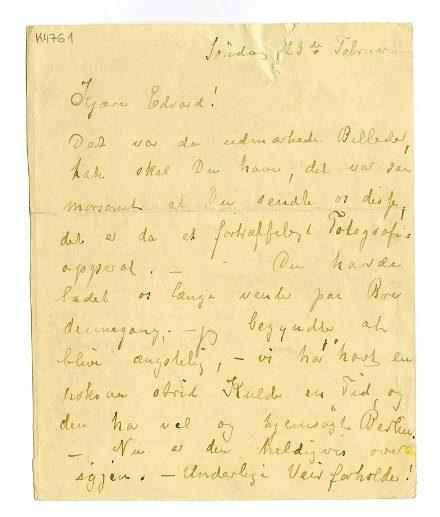 K4761
Søndag 23de Februar
Kjære Edvard!
Det var da udmærkede Billeder,
tak skal Du have, det var saa
morsomt at Du sendte os disse,
det er da et fortræffeligt Fotografi-
apperat. — - Du havde
ladet os længe vente paa Brev
dennegang, — jeg begyndte at
blive ængstelig, — vi har havt en
noksaa strid Kulde en Tid, og
den har vel og hjemsøgt Berlin.
— Nu er den heldigvis over
igjen. — Underlige Veirforholde!